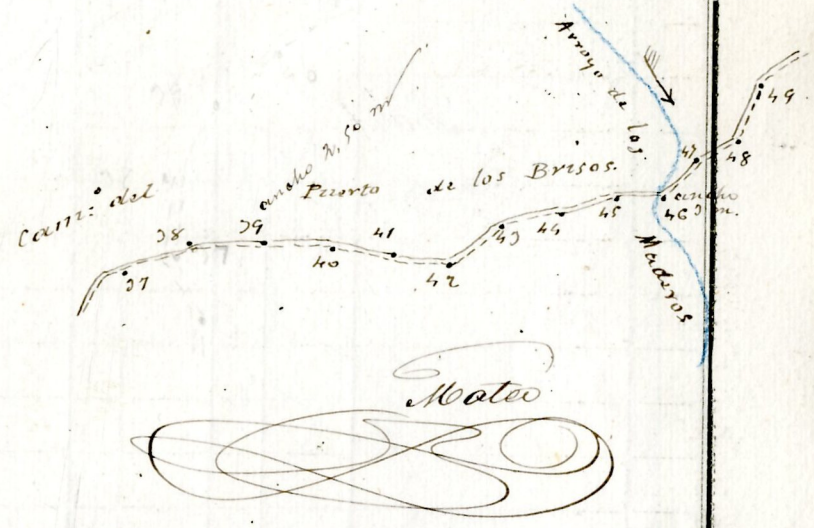 Cam.º del Puerto de los Brisos.
ancho 2,50 m
Arroyo de los Maderos
37
38
39
40
41
42
43
44
45
46
ancho 3 m.
47
48
49
Mateo